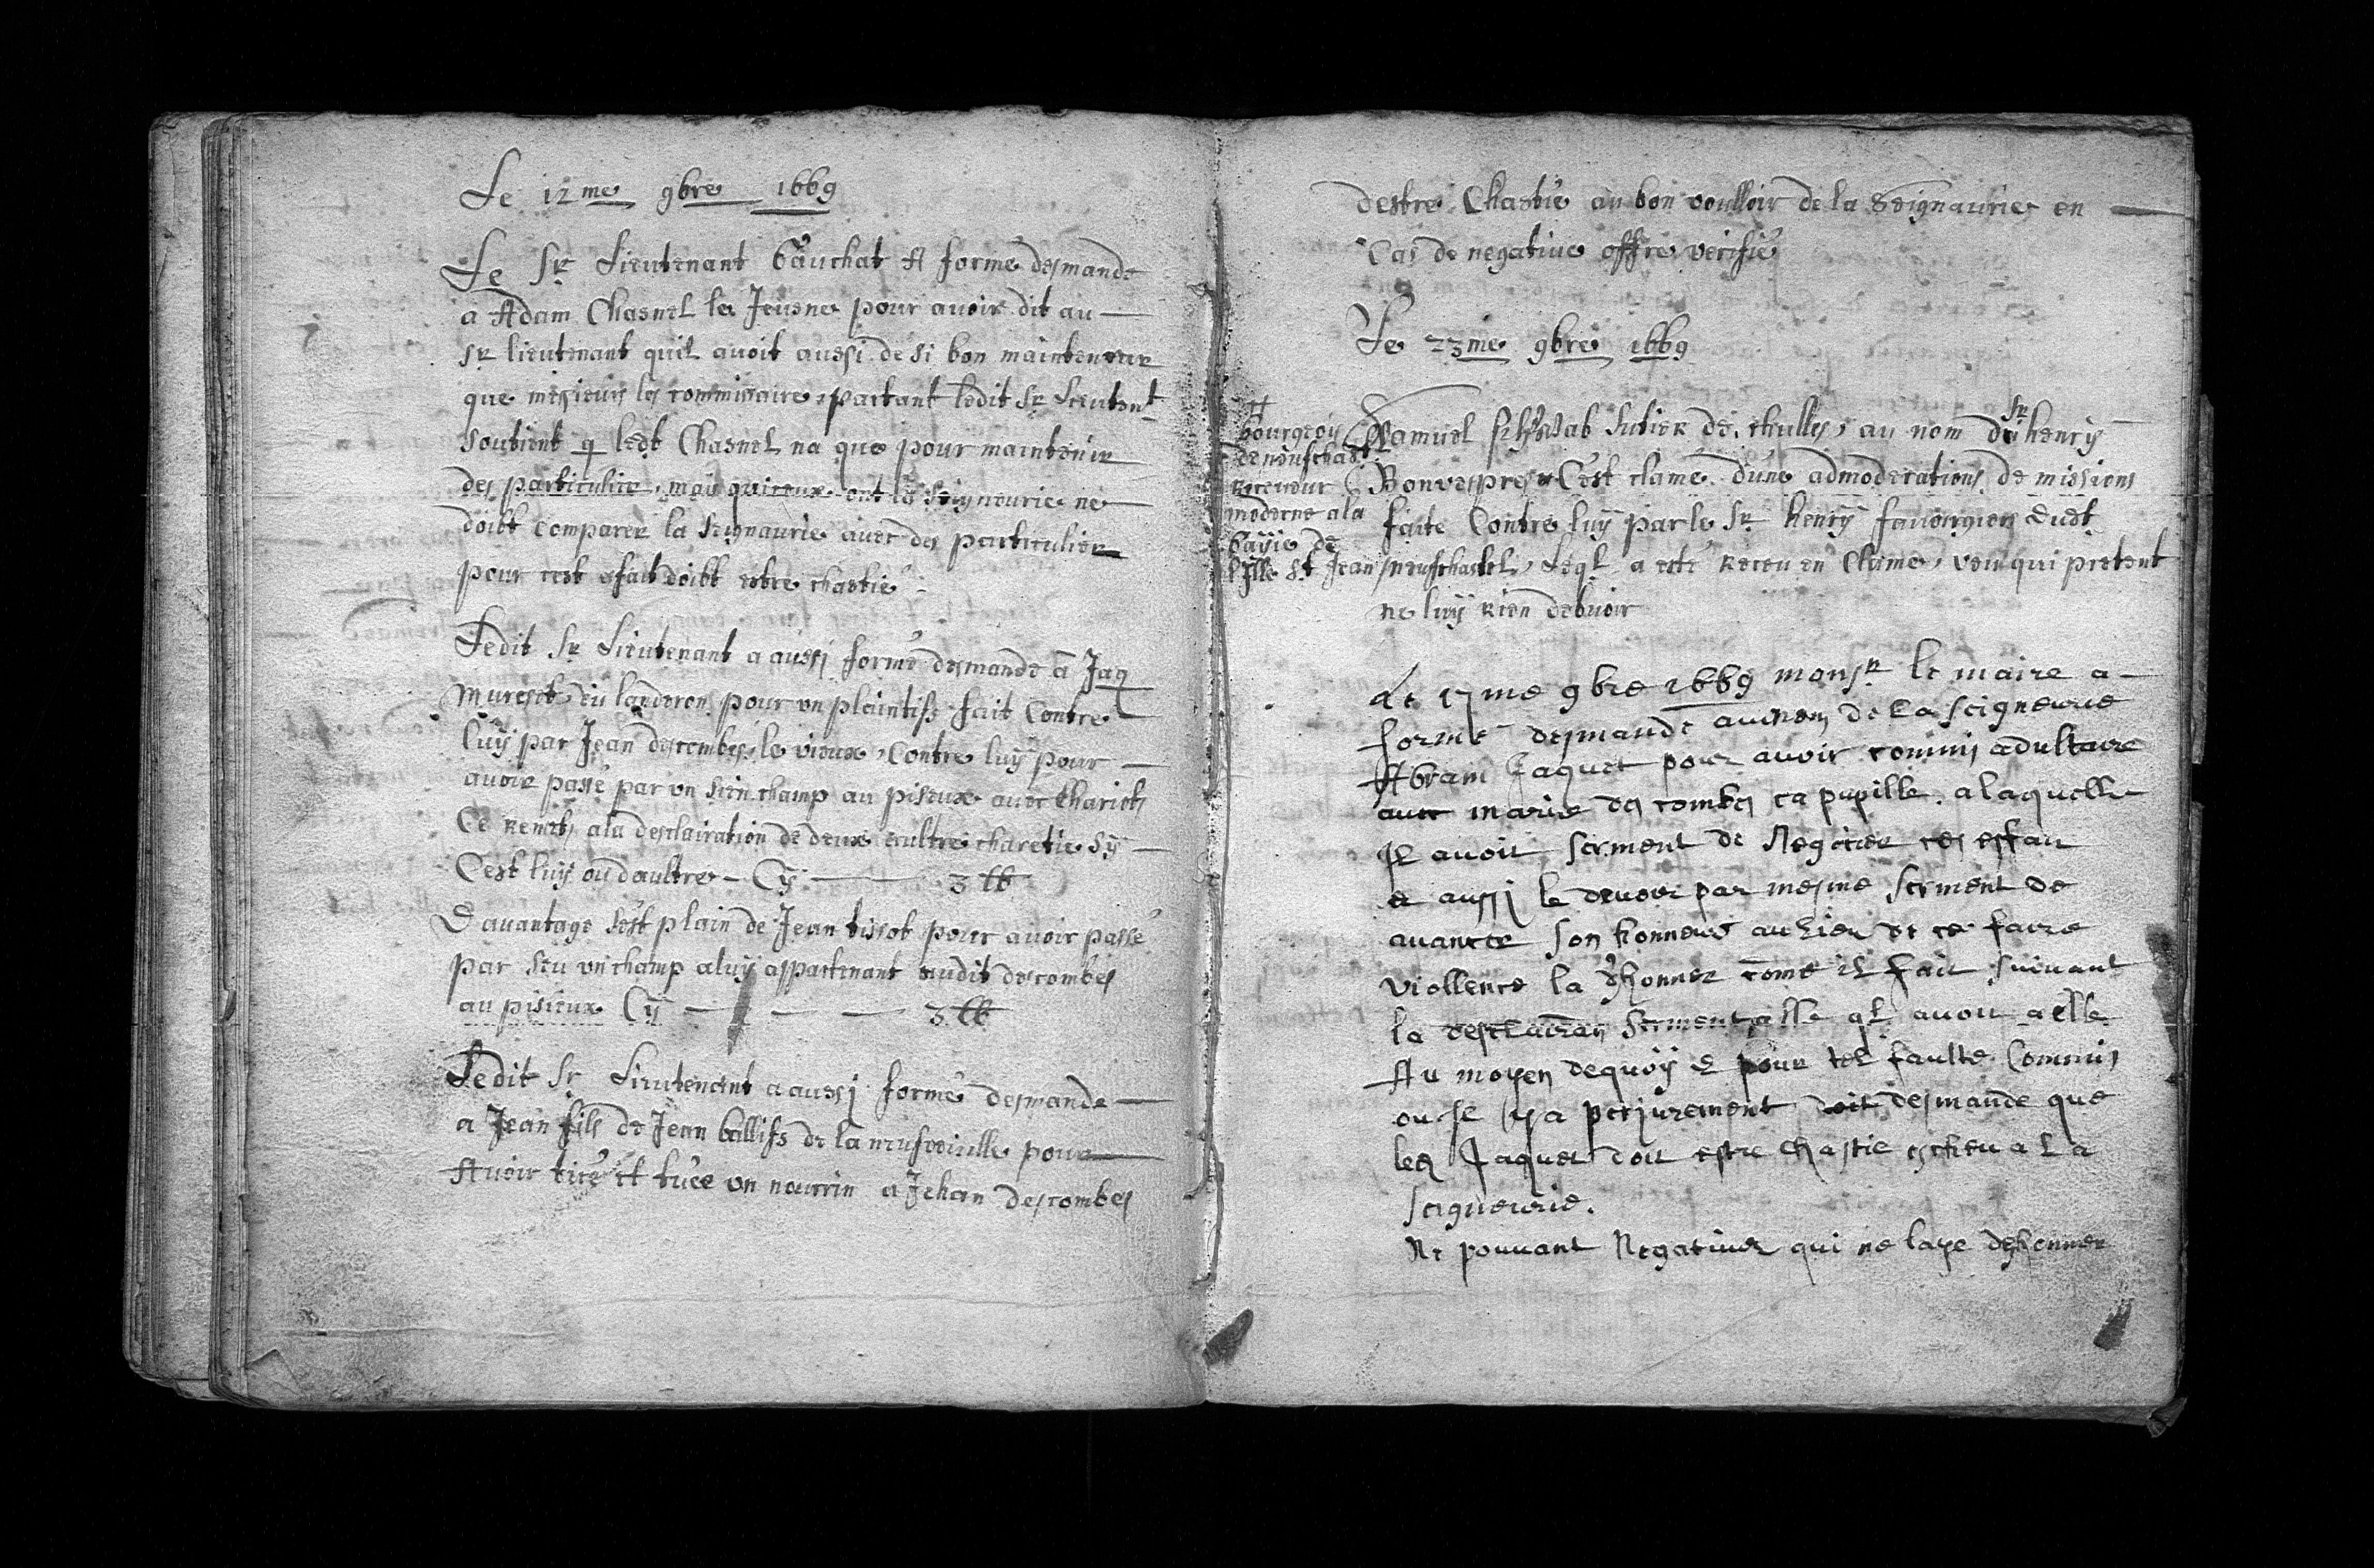 Le 12me 9bre 1669
Le Sr Lieutenant Gauchat A formé desmande
a Adam Chasnel le Jeusne pour avoir dit au
Sr lieutenant quil avoit aussi de si bon mainteneur
que mesieurs les commissaire, partant ledit Sr Lieutent
soutient q ledt Chasnel na que pour maintenir
des particulier, mais la seigneurie ne
doibt comparer la seignaurie avec des particulier
pour cest efait doibt estre chastié
Ledit Sr Lieutenant a aussi formé desmande à Jaq
Mureset du landeron pour un plaintifs fait Contre
luÿ par Jean descombes, le vieux, Contre luÿ pour
avoir passé par un sien champ au piseux avec Chariots
Ce remets a la desclairation de deux aultre charetie sÿ
C'est luÿ ou daultre - Cÿ 3 lb
Davantage s'est plain de Jean tissot pour avoir passé
par seu un champ a luÿ appartenant audit descombes
au pisieux Cÿ 3 lb
Ledit Sr Lieutenant a aussi formé desmande
a Jean fils de Jean ballifs de la neufveville pour
Avoir tiré et tuée un nourrin a Jehan descombes
destre Chastié au bon voulloir de la Seignaurie en
Cas de negative offre verifié
Le 23me 9bre 1669
Samuel schwab sutier de thulles, au nom du Sr henrÿ
Bonvespre C'est clamé d'une admoderations de missions
faite Contre luÿ par le Sr henrÿ favargier dudt
neufchastel, Leql a esté receu en Clame, veu qui pretent
ne luÿ rien debvoir
bourgeois
de neufchastel
receveur
moderne a la
baÿie de
l'Ille St Jean
Le 17me 9bre 1669 monsr le maire a
formé desmande au nom de la seigneurie
Abram Jaquet pour avoir commis adultaire
avec marie des combes ca pupille. a laquelle
Jl avoit serment de Negotier ces effait
e aussi le devoir par mesme serment de
avancer son honneur au lieu de ce faire
viollence la dhonner come il fait suivant
la serment alle ql avoit a elle
Au moyen dequoÿ e pour tel faulte Commis
ou se ÿ a perjurement desmande que
led Jaquet doit estre chastie escheu a la
seigneurie.
Ne pouvant Negativer qui ne laye deshonner